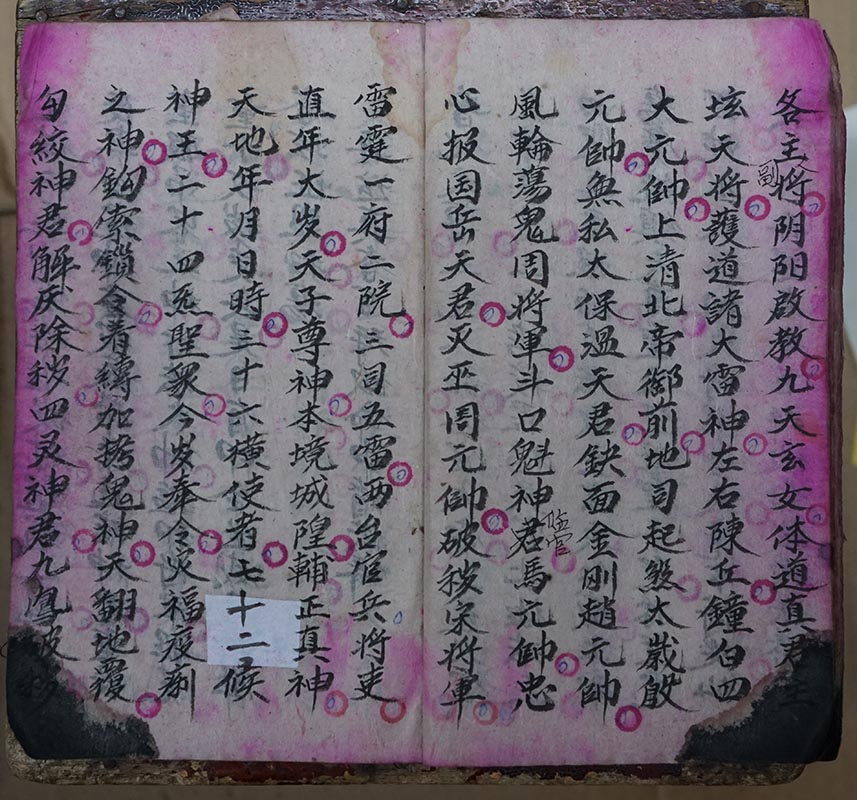 各主将阴阳啟教九天玄女体道真君主
副
坛天将護道諸大雷神左右陳丘鐘白四
大元帥上清北帝御前地司起煞太歲殷
元帥無私太保温天君鈌面金刚趙元帥
風輪蕩鬼周将軍斗口魁神君馬元帥忠
监官
心报国岳天君灭巫周元帥破秽宋将軍
雷霆一府二院三司五雷两台官兵将吏
直年大岁天子尊神本境城隍輔正真神
天地年月日時三十六横使者七十二候
神王二十四炁聖衆今岁奉令灾福疫痢
之神鈎索鎖令看縛加拷鬼神天翻地覆
勾絞神君解厌除秽四灵神君九鳳破秽